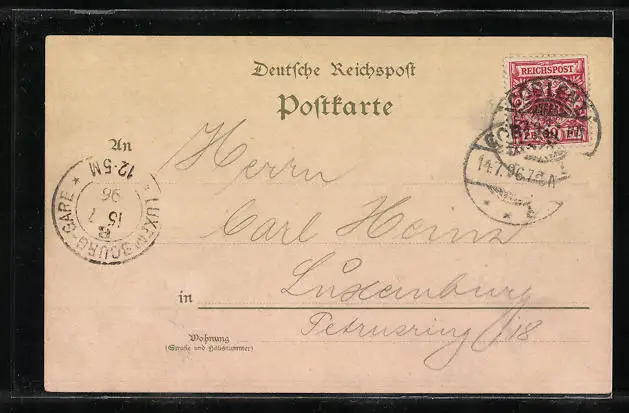 Deutsche Reichspost
Postkarte
REICHSPOST
14.7.96.
An
Herrn
12-5M
96
15
7
LUXEMBOURG-GARE
Carl Heinz
in Luxemburg
Petrusring 18
Wohnung
(Straße und Hausnummer)